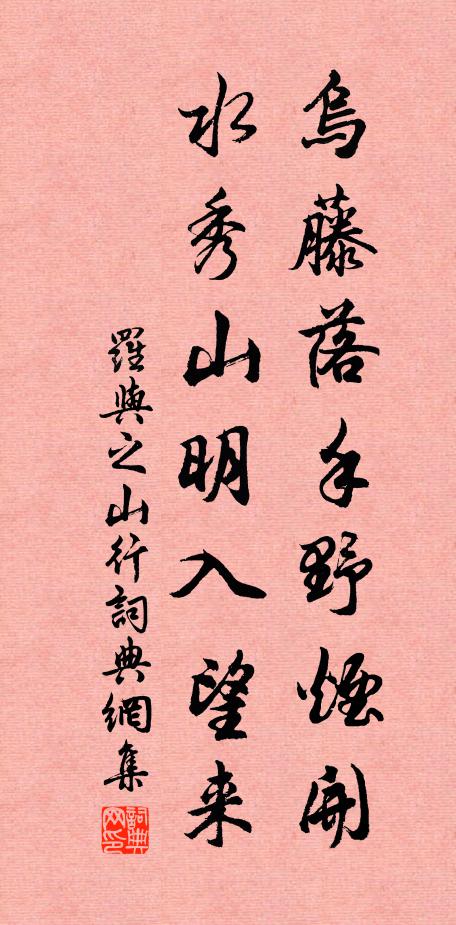 烏藤落手野煙開
水秀山明入望来
羅與之山行詞典網集
詞典网印